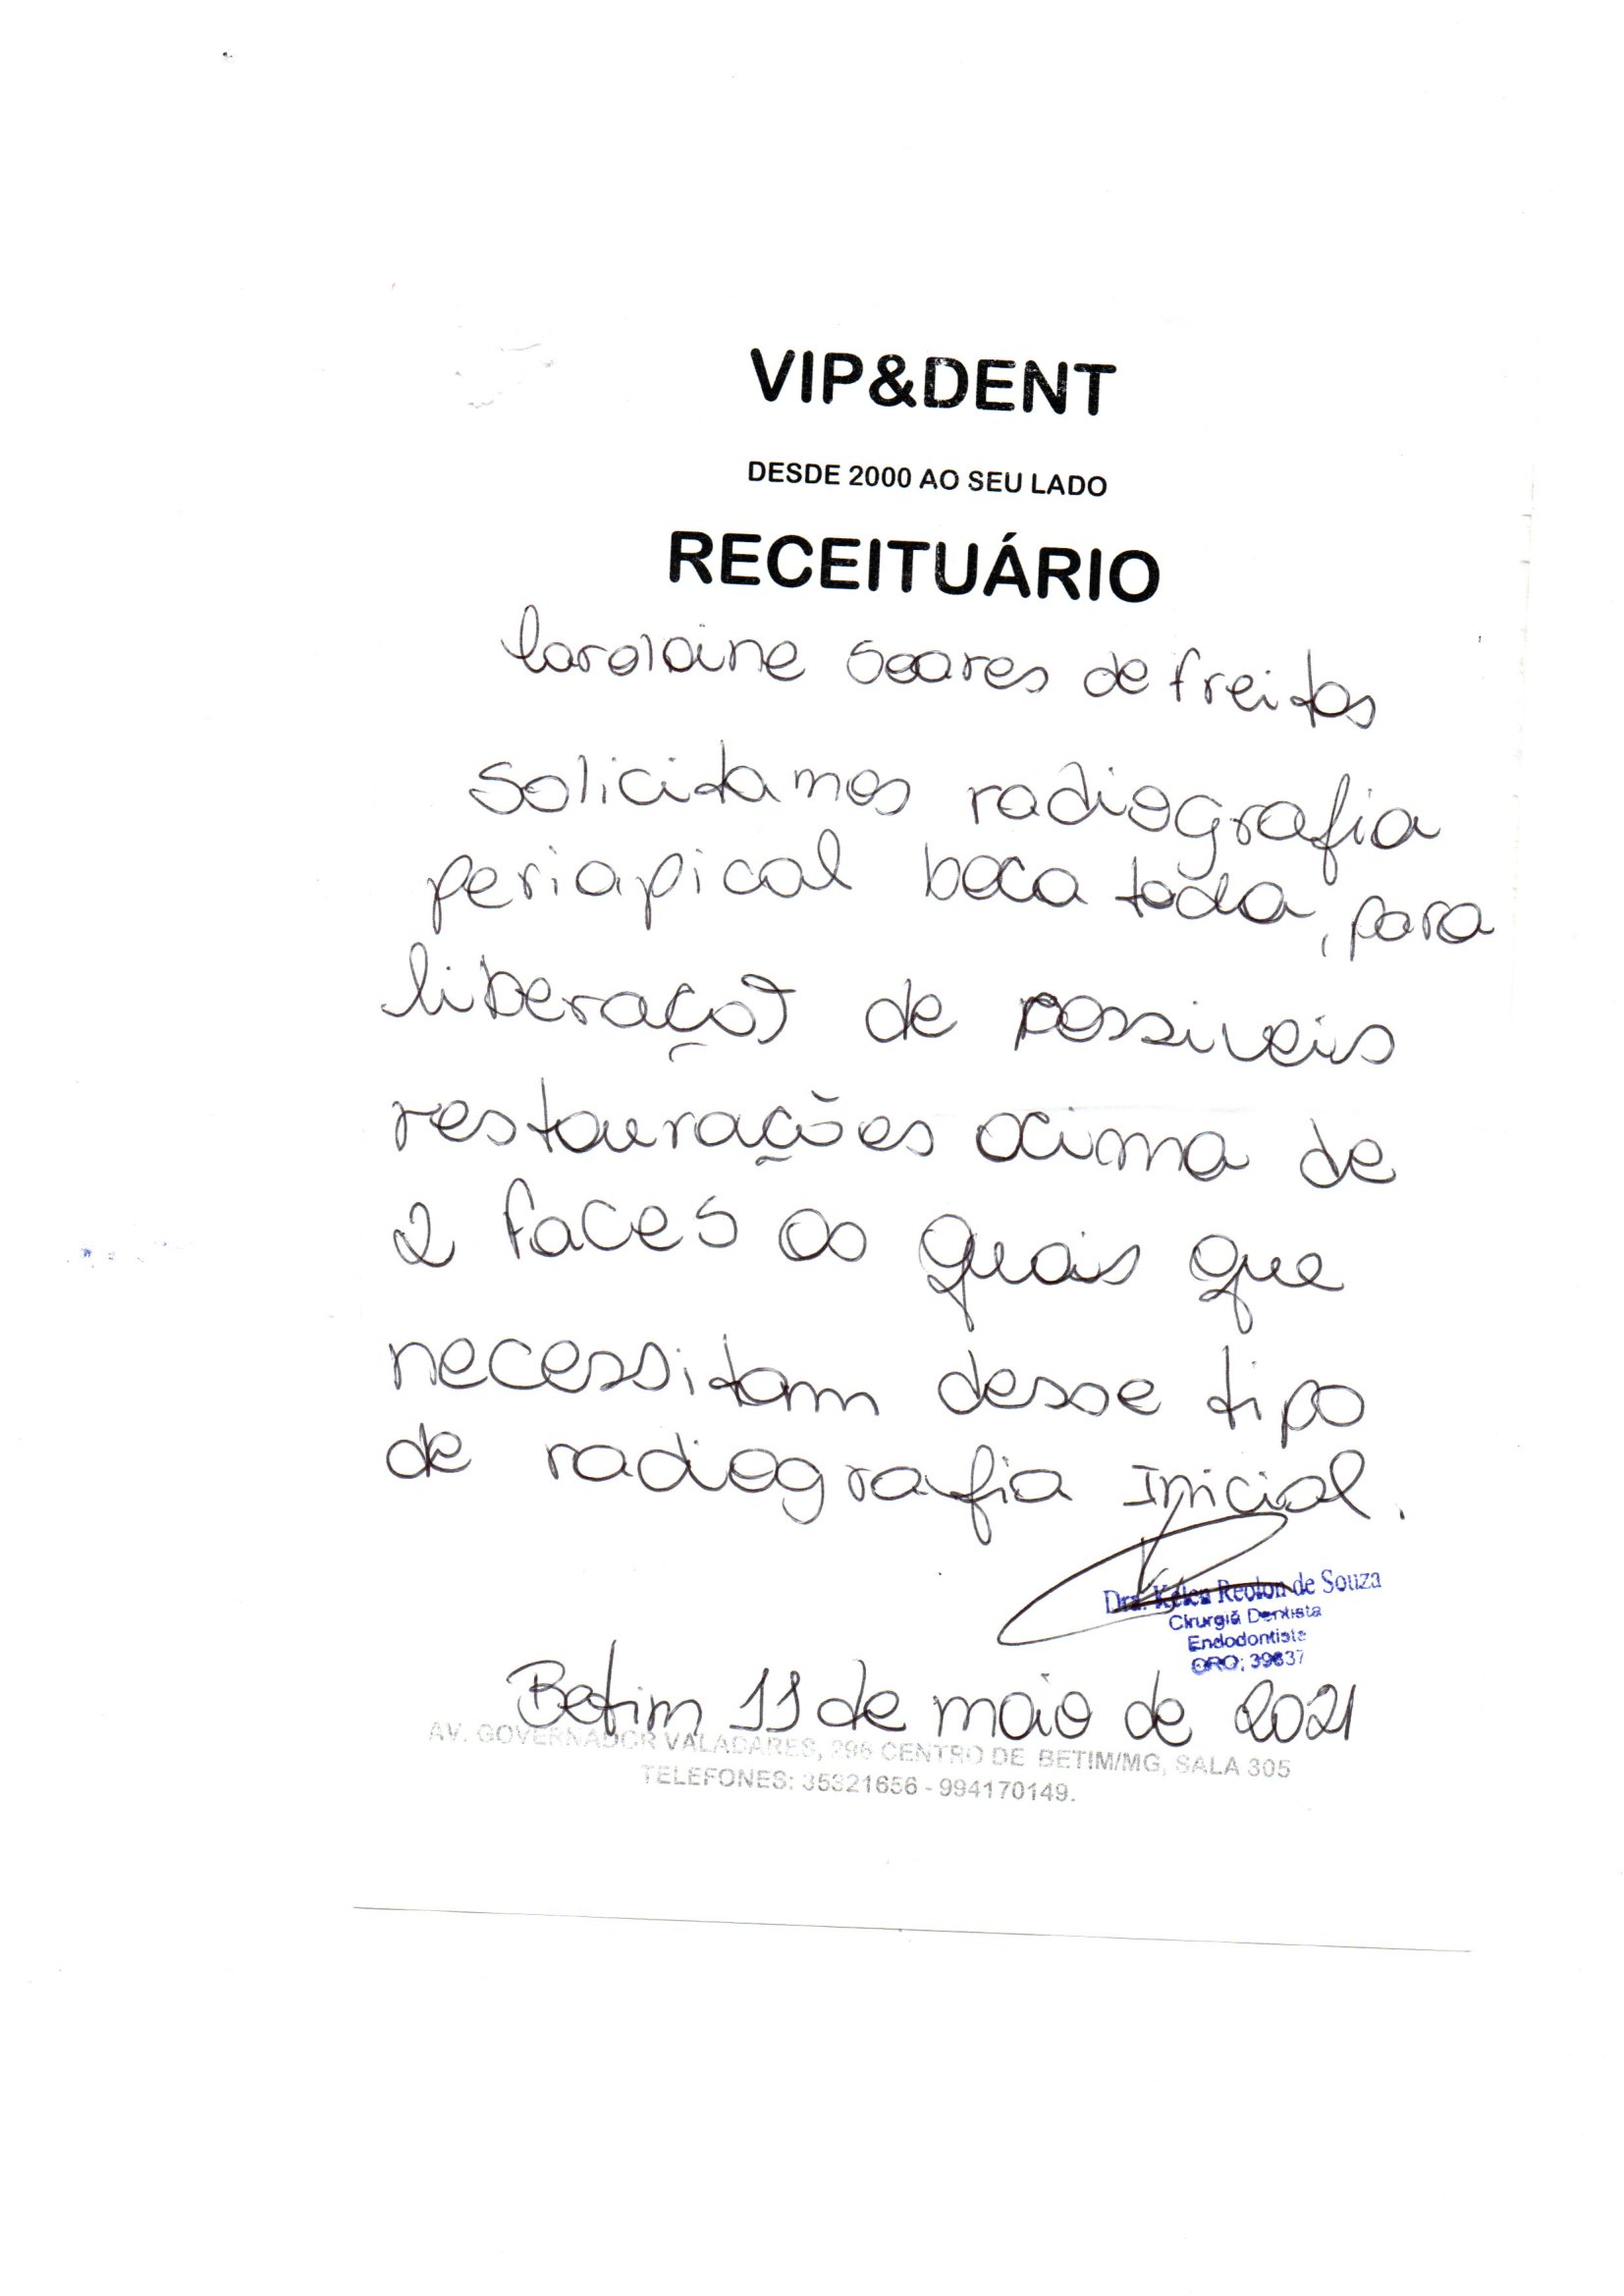 VIP&DENT
DESDE 2000 AO SEU LADO
RECEITUÁRIO
Carolaine Soares de freitas
Solicitamos radiografia
periapical boca toda, para
liberação de possiveis
restaurações acima de
2 faces as quais que
necessitam desse tipo
de radiografia Inicial.
Dra. Kelen Reolon de Souza
Cirurgiã Dentista
Endodontista
CRO; 39637
Betim 11 de maio de 2021
AV. GOVERNADOR VALADARES, 296 CENTRO DE BETIM/MG, SALA 305
TELEFONES: 35321656 - 994170149.